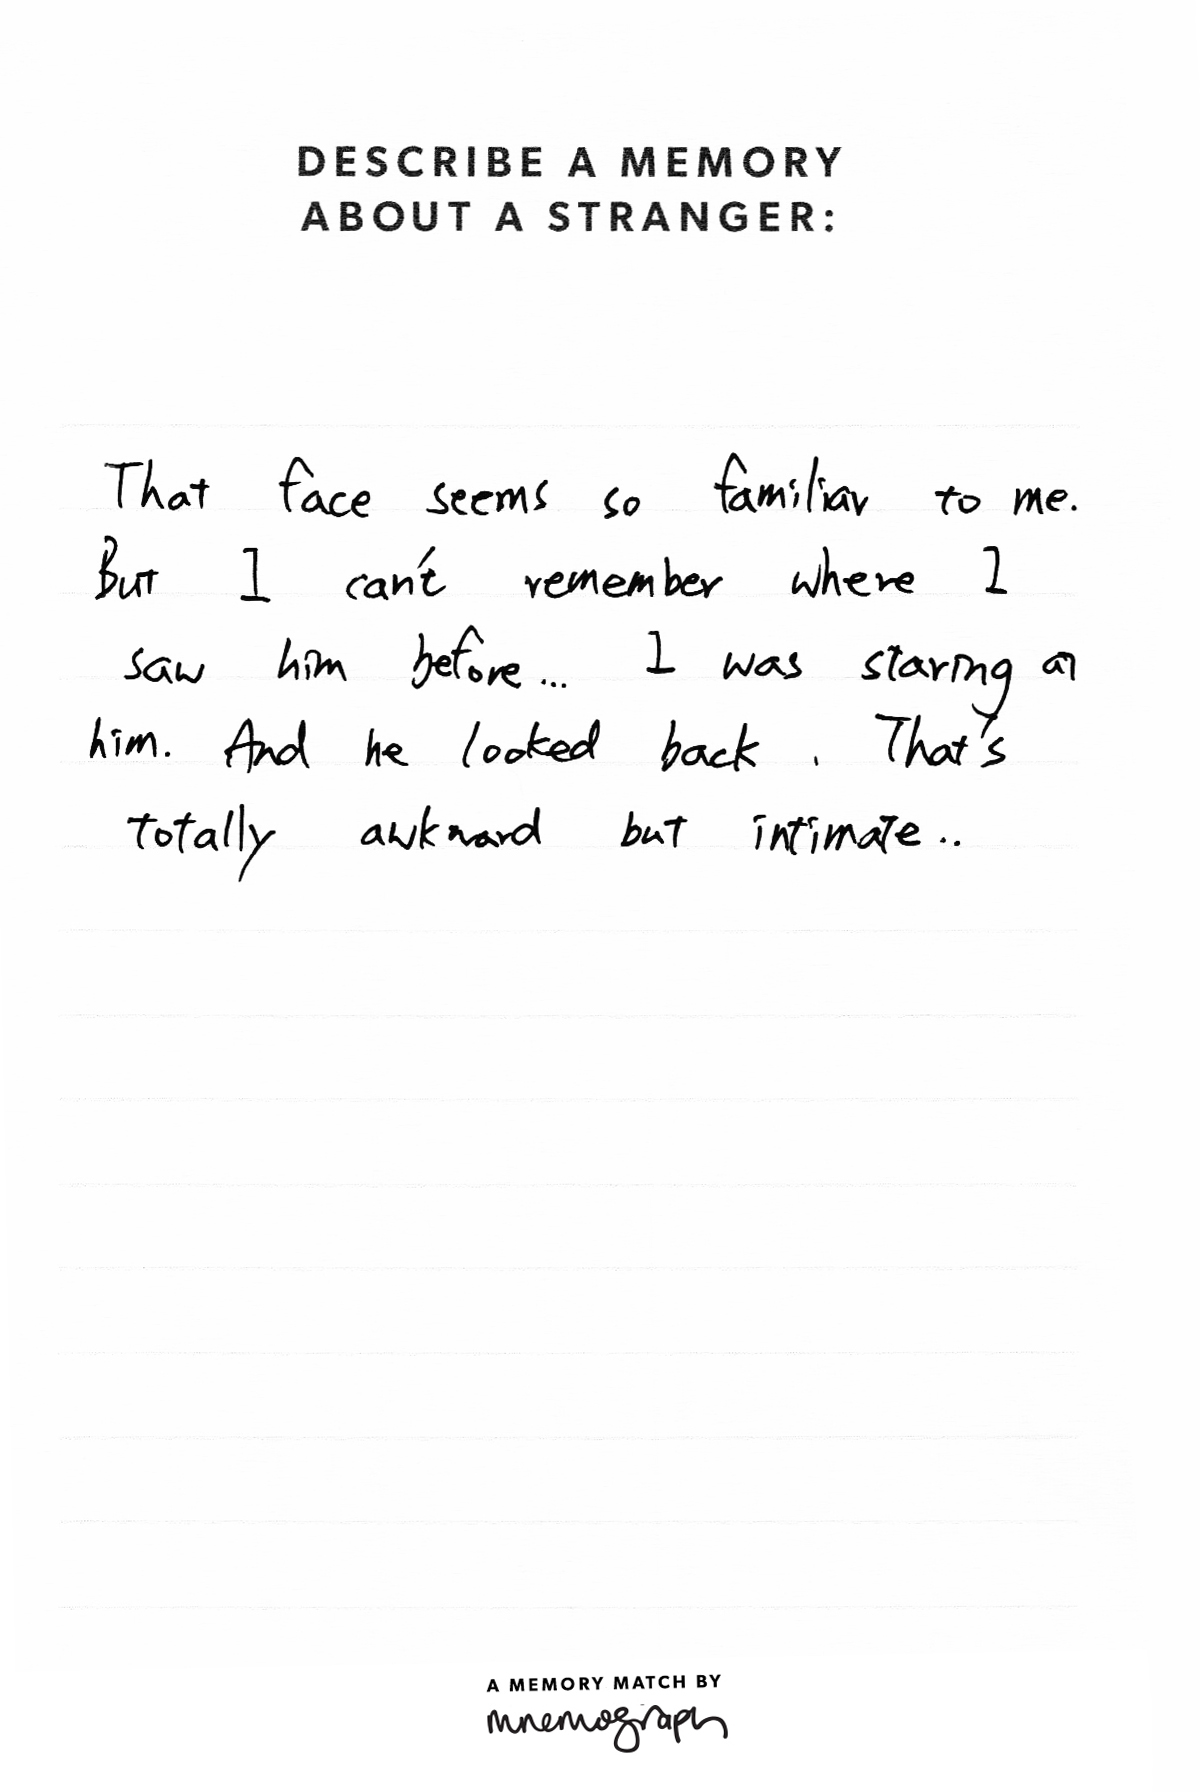 DESCRIBE A MEMORY
ABOUT A STRANGER:
That face seems so familiar to me.
But I can't remember where I
saw him before... I was staring at
him. And he looked back . That's
totally awkward but intimate..
A MEMORY MATCH BY
mnemograph